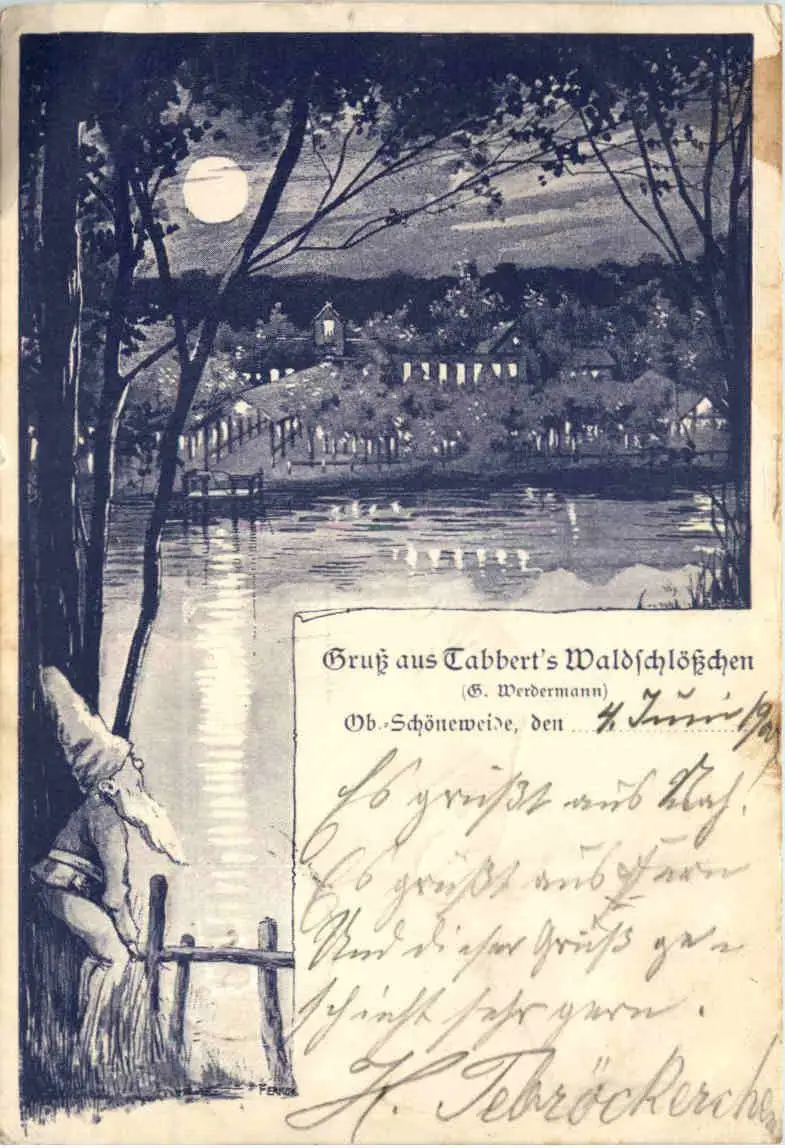 Gruß aus Tabbert's Waldschlößchen
(G. Werdermann)
Ob.-Schöneweide, den 4. Juni
Es grüßt aus Nah!
Es grüßt aus Fern
Und dieser Gruß ge-
schieht sehr gern.
H. Tebröckerchen